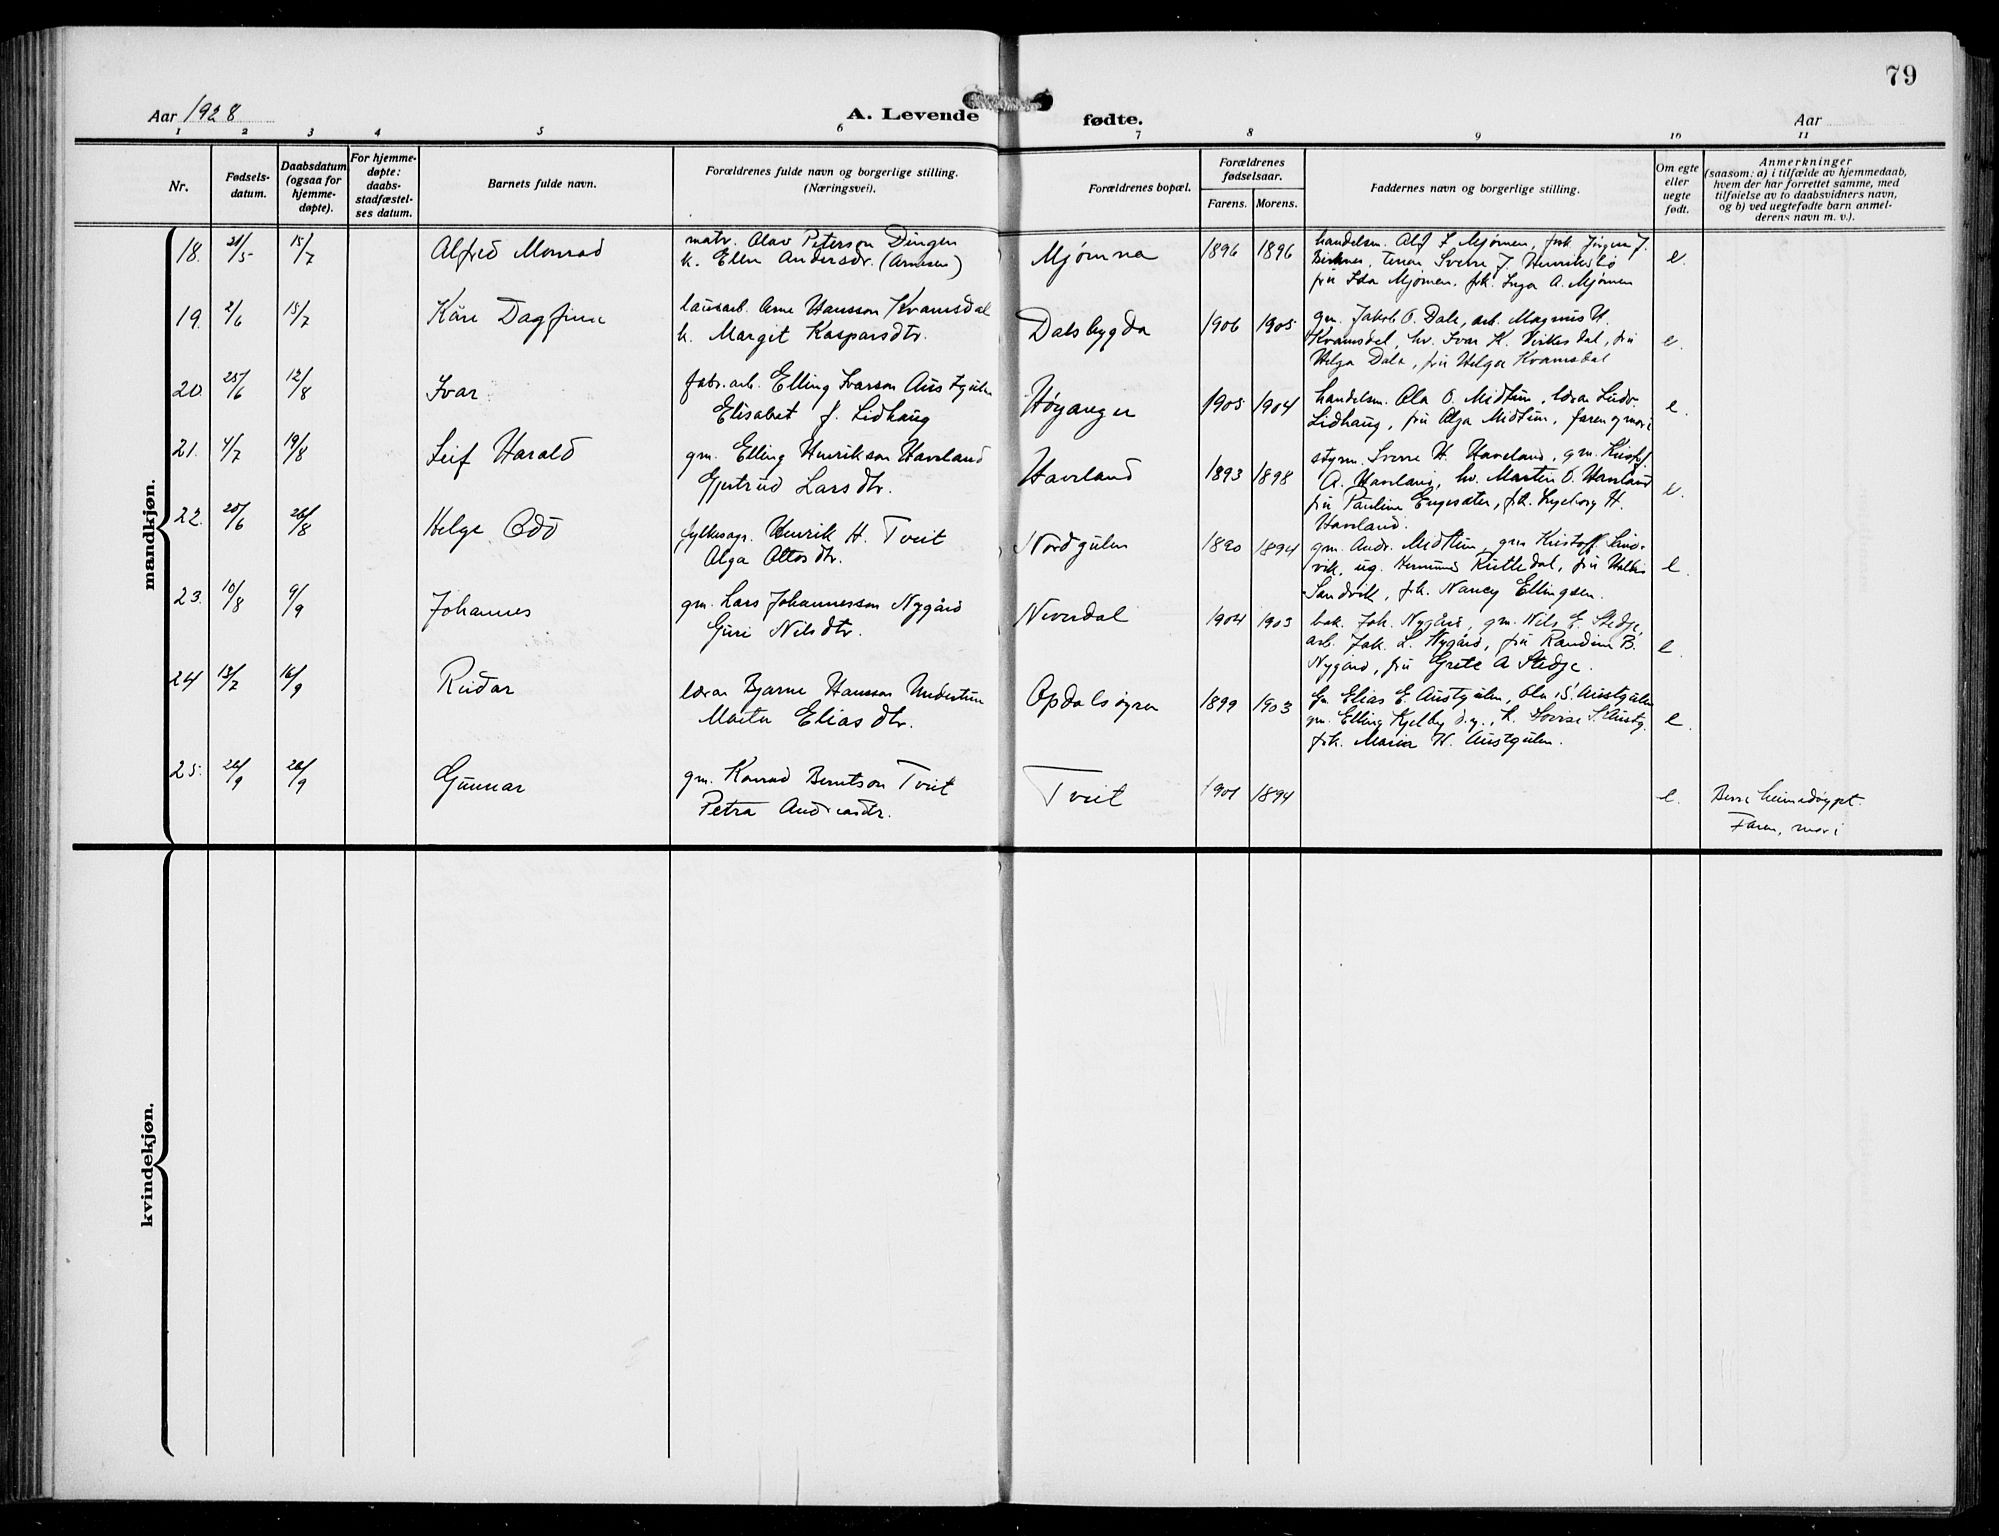 79
Aar 1928
A. Levende fødte.
Aar
1 2 3 4 5 6 7 8 9 10 11
Nr.
Fødsels-
datum.
Daabsdatum
(ogsaa for
hjemme-
døpte).
For hjemme-
døpte:
daabs-
stadfæstel-
ses datum.
Barnets fulde navn.
Forældrenes fulde navn og borgerlige stilling.
(Næringsvei).
Forældrenes bopæl.
Forældrenes
fødselsaar.
Farens. Morens.
Faddernes navn og borgerlige stilling.
Om egte
eller
uegte
født.
Anmerkninger
(saasom: a) i tilfælde av hjemmedaab,
hvem der har forrettet samme, med
tilføielse av to daabsvidners navn,
og b) ved uegtefødte barn anmel-
derens navn m. v.).
mandkjøn.
18. 21/5 15/7 Alfred Monrad
matr. Olav Peterson Dingen
k. Ellen Andersdr. (Arnesen)
Mjømna 1896 1896
handelsm. Alf L. Mjømen, frk. Jørgen J.
Sverre J.
fru Ida Mjømen, frk. Inga A. Mjømen
e.
19. 2/6 15/7 Kåre Dagfinn
lausarb. Arne Hansson Kvamsdal
k. Margit Kasparsdtr.
Dalsbygda 1906 1905
gm. Jakob O. Dale, arb. Magnus H.
Kvamsdal, hv. Ivar K. Virkesdal, fru
Helga Dale, fru Helga Kvamsdal
e.
20. 25/6 12/8 Ivar
fabr.arb. Elling Ivarson Austgulen
Elisabet f. Lidhaug
Høyanger 1905 1904
handelsm. Ola O. Midtun, lærar Ludv.
Lidhaug, fru Olga Midtun, faren og mori
e.
21. 4/7 19/8 Leif Harald
gm. Elling Henrikson Haveland
Gjertrud Larsdtr.
Haveland 1893 1898
styrm. Sverre H. Haveland, gm. Kristof
A. Haveland, hv. Martin O. Haveland
fru Pauline Engesæter, frk. Ingeborg H.
Haveland.
e.
22. 20/6 26/8 Helge Odd
fylkesagr. Henrik H. Tveit
Olga Ottosdtr.
Nordgulen 1890 1894
gm. Andr. Midtun, gm Kristoff. Sand-
vik, ug. Hermund Rutledal, fru
Sandvik, frk. Nancy Ellingsen.
e.
23. 10/8 9/9 Johannes
gm. Lars Johannesson Nygård
Guri Nilsdtr.
Neverdal 1904 1903
bak. Joh. Nygård, gm. Nils E. Stedje,
arb. Joh. L. Nygård, fru Randine B.
Nygård, fru Grete A Stedje.
e.
24 13/7 16/9 Reidar
lærar Bjarne Hansson Undertun
Marta Eliasdtr.
Opdalsøyra 1899 1903
gm Elias E. Austgulen, Ola S. Austgulen
gm. Elling Kjelby d.y., k. Lovise S. Austg.
frk. Maria H. Austgulen.
e.
25. 26/9 26/9 Gunnar
gm. Konrad Berntson Tveit
Petra Andreasdtr.
Tveit 1901 1894
e.
Berre heimedøypt.
Faren, mori
kvindekjøn.